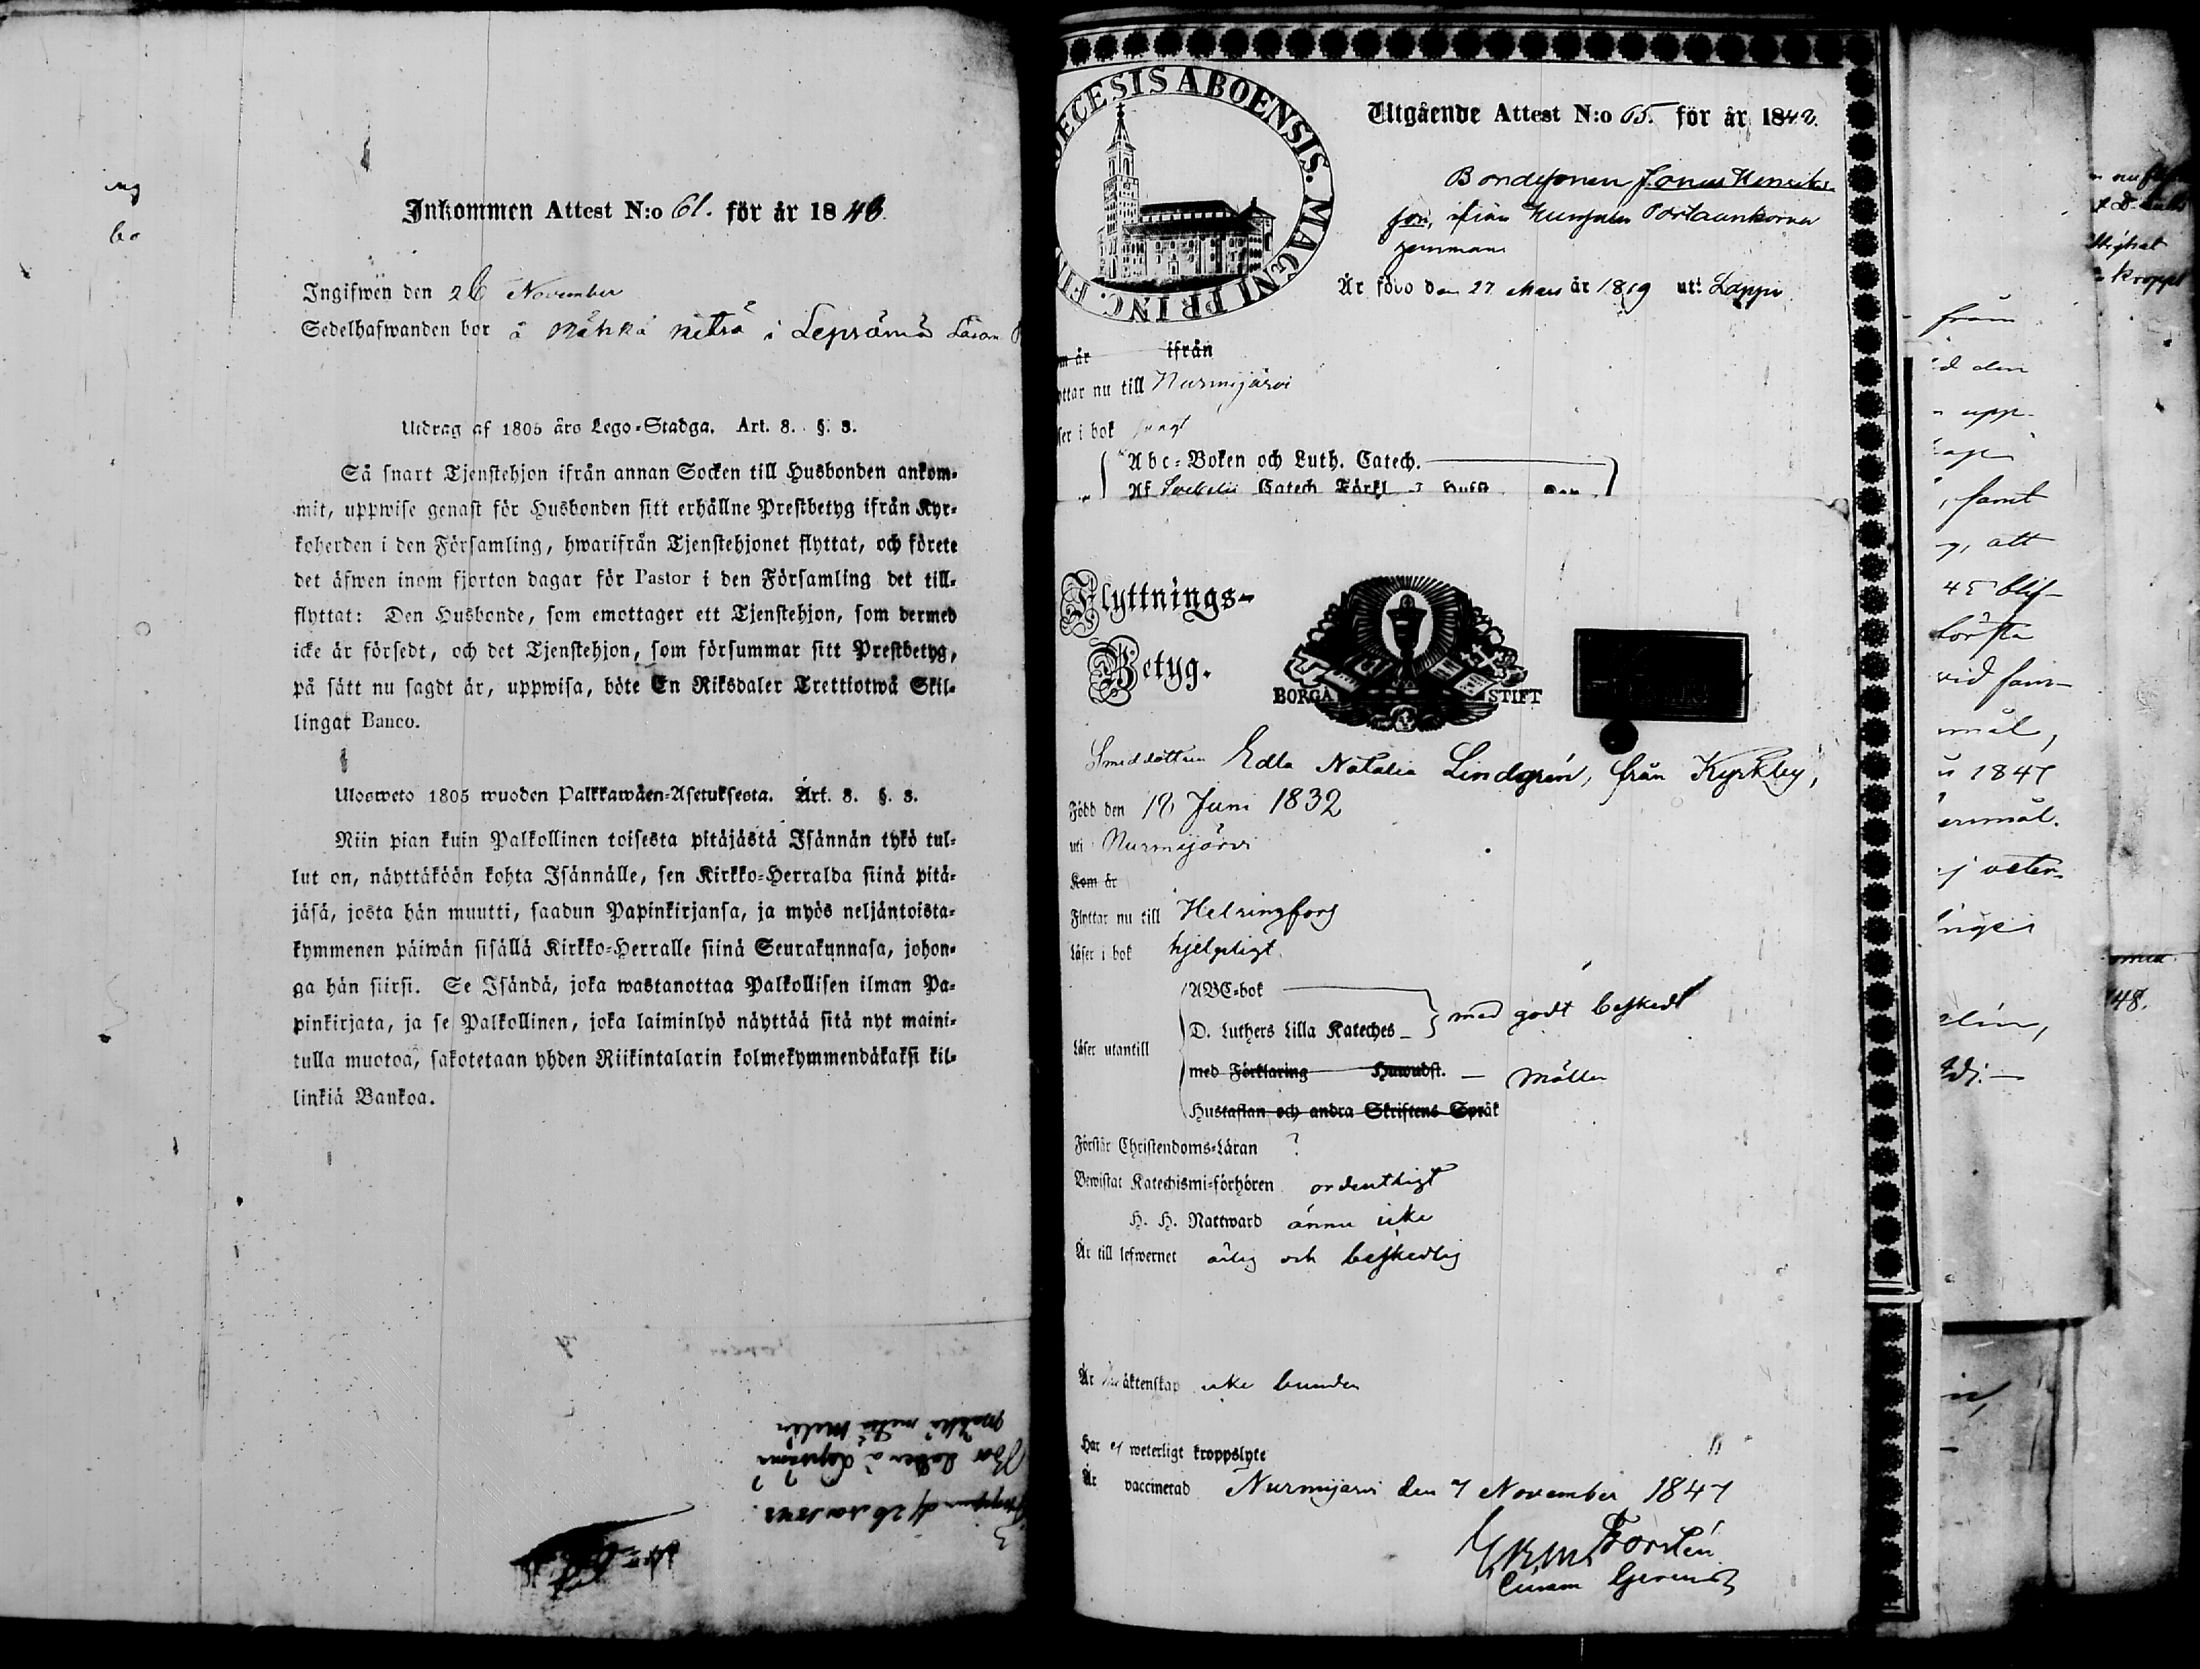 Inkommen Attest N:o 61. för år 1848
Ingifwen den 26 November
Sedelhafwanden bor å Mähkä netsä i Lepsämä
Utdrag af 1805 års Lego-Stadga. Art. 8. §. 3.
Så snart Tjenstehjon ifrån annan Socken till Husbonden ankom-
mit, uppwise genast för Husbonden sitt erhållne Prestbetyg ifrån Kyr-
koherden i den Församling, hwarifrån Tjenstehjonet flyttat, och förete
det äfwen inom fjorton dagar för Pastor i den Församling det till-
flyttat: Den Husbonde, som emottager ett Tjenstehjon, som dermed
icke är försedt, och det Tjenstehjon, som försummar sitt Prestbetyg,
på sätt nu sagdt är, uppwisa, böte En Riksdaler Trettiotwå Skil-
lingar Banco.
Ulosweto 1805 wuoden Palkkawäen-Asetuksesta. Art. 8. §. 3.
Niin pian kuin Palkollinen toisesta pitäjästä Isännän tykö tul-
lut on, näyttäköön kohta Isännälle, sen Kirkko-Herralda siinä pitä-
jäsä, josta hän muutti, saadun Papinkirjansa, ja myös neljäntoista-
kymmenen päiwän sisällä Kirkko-Herralle siinä Seurakunnasa, johon-
ga hän siirsi. Se Isändä, joka wastanottaa Palkollisen ilman Pa-
pinkirjata, ja se Palkollinen, joka laiminlyö näyttää sitä nyt maini-
tulla muotoa, sakotetaan yhden Riikintalarin kolmekymmendäkaksi kil-
linkiä Bankoa.
DIOECESIS ABOENSIS. MAGNI PRINC. FIN
Utgående Attest N:o 65. för år 1848.
Bondesonen Jonas Henriks-
son, ifrån
hemman
Är född den 27 Mars år 1819 uti Lappi
om år ifrån
yttar nu till Nurmijärvi
ser i bok
Abc-Boken och Luth. Catech.
Af Svebelii Catech Förkl Hust
Flyttnings-
Betyg.
BORGÅ STIFT
Smeddottren Edla Natalia Lindgrén, från Kyrkby,
Född den 18 Juni 1832
uti Nurmijärvi
Kom år
Flyttar nu till Helsingfors
Läser i bok hjelpligt
ABC-bok
D. Luthers Lilla Kateches med godt beskedl
Läser utantill
med Förklaring Huwudst. Möller
Hustaflan och andra Skriftens Språk
Förstår Christendoms-Läran ?
Bewistat Katechismi-förhören ordentligt
H. H. Nattward ännu icke
Är till lefwernet ärlig och beskedlig
Är till äktenskap icke bunden
Har ej weterligt kroppslyte
Är vaccinerad Nurmijärvi den 7 November 1847
Forstén
från
d den
upp-
samt
att
45 blif-
första
vid
1847
48.